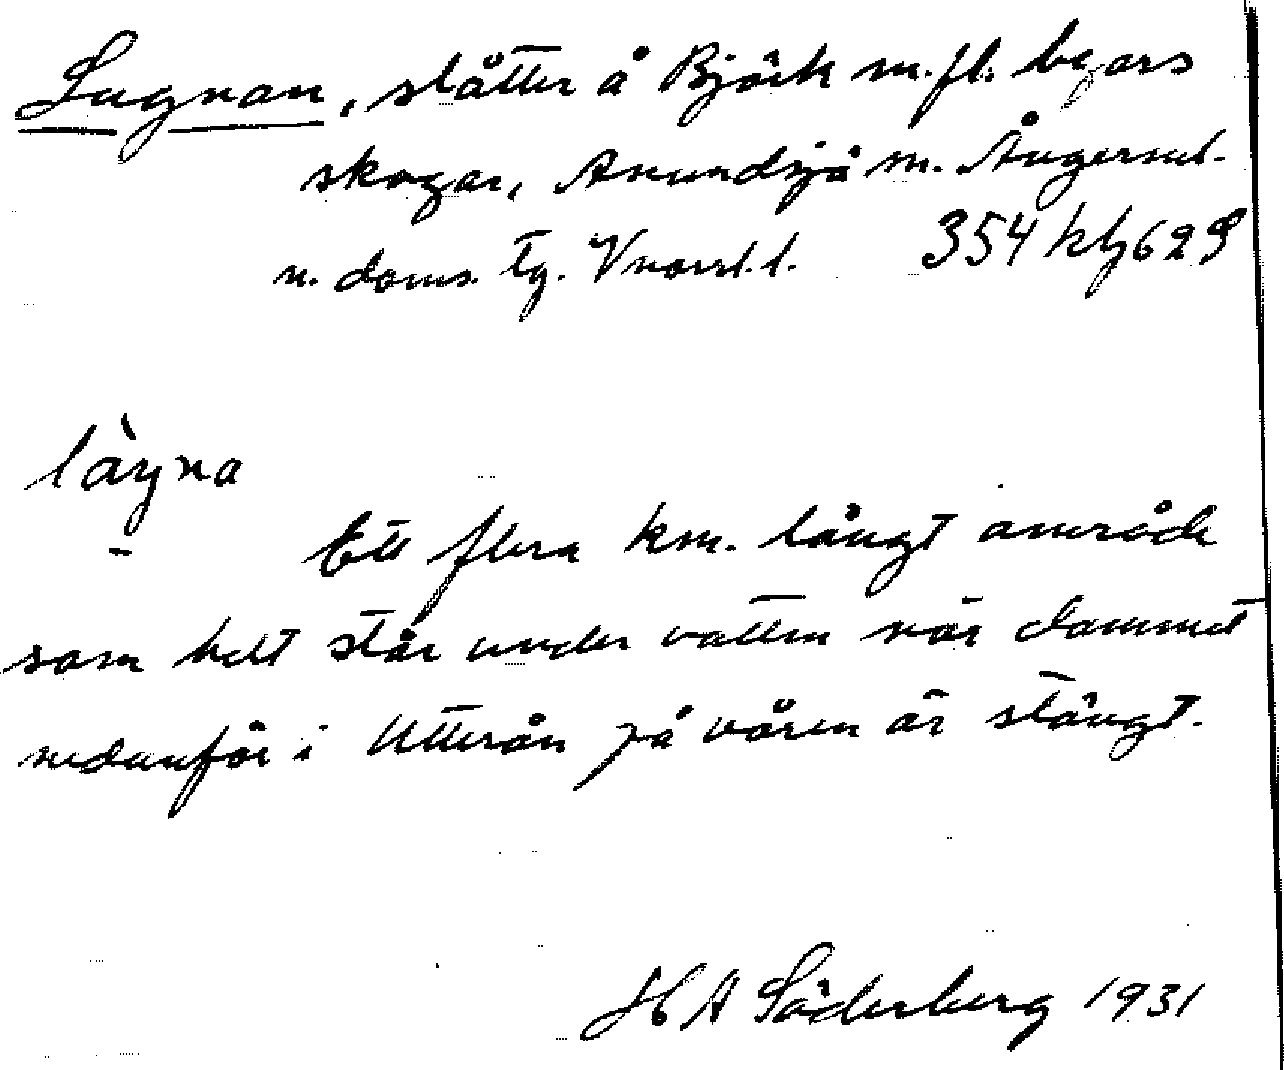 Lugnan, slåtter å Björk m.fl. byars
skogar, Anundsjö sn. Ångerml.
n. doms. tg. Vnorrl. l. 354 klj 629
làgna
Ett flera km. långt område
som helt står under vatten när dammet
nedanför i Utterån på våren är stängt.
H A Söderberg 1931